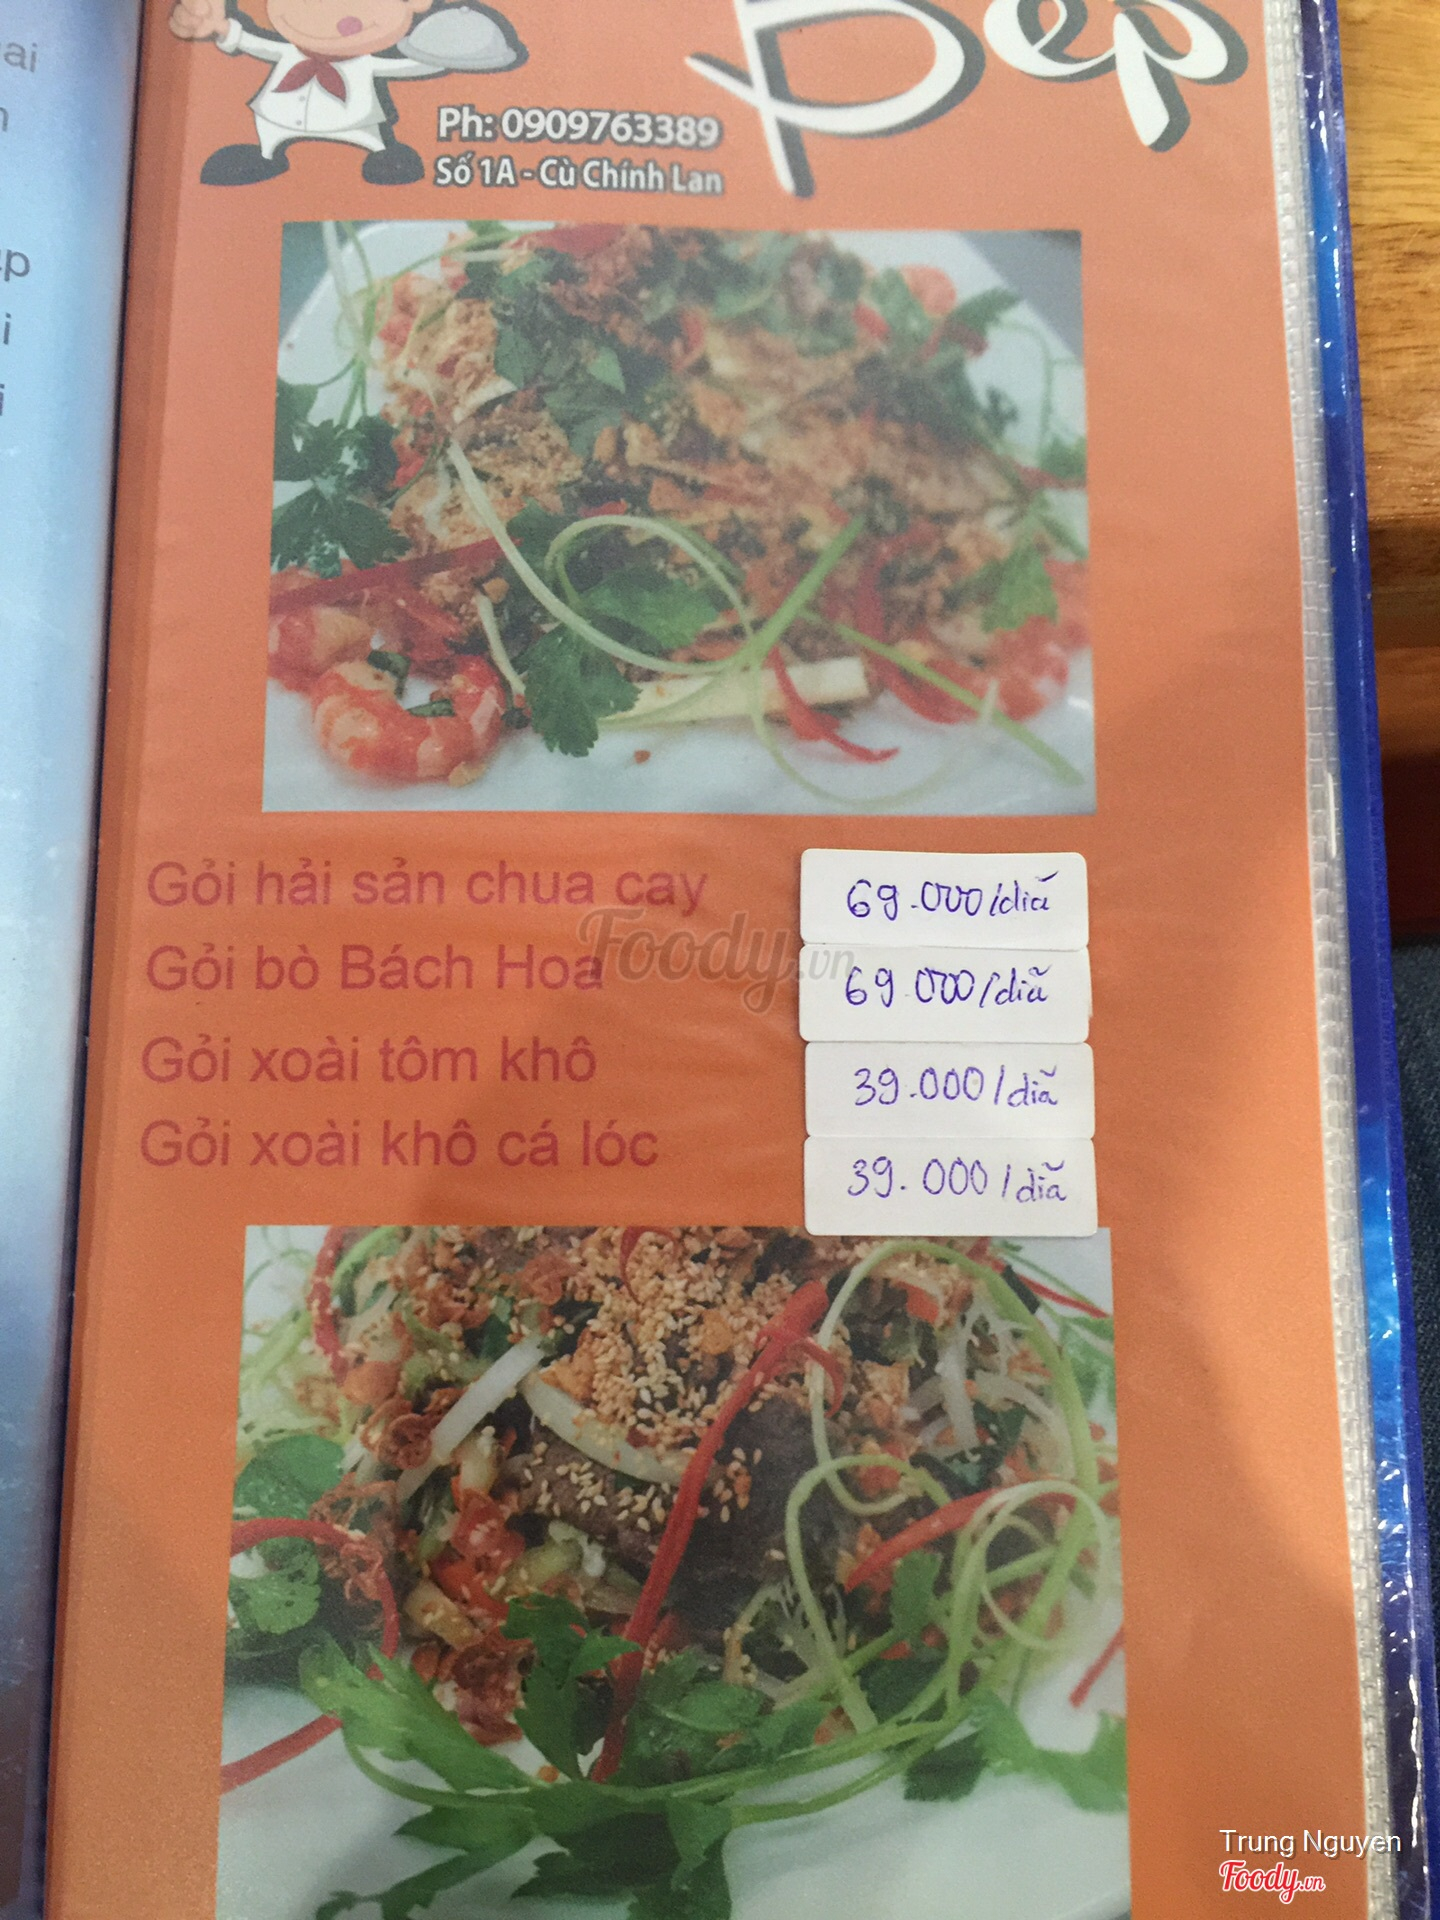 Bếp
Ph: 0909763389
Số 1A - Cù Chính Lan
Gỏi hải sản chua cay 69.000/dĩa
Gỏi bò Bách Hoa 69.000/dĩa
Gỏi xoài tôm khô 39.000/dĩa
Gỏi xoài khô cá lóc 39.000/dĩa
Foody.vn
Trung Nguyen
Foody.vn